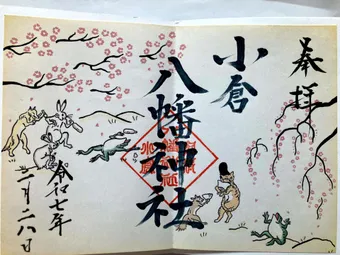 奉拝
小倉
八幡神社
令和七年
月二八日